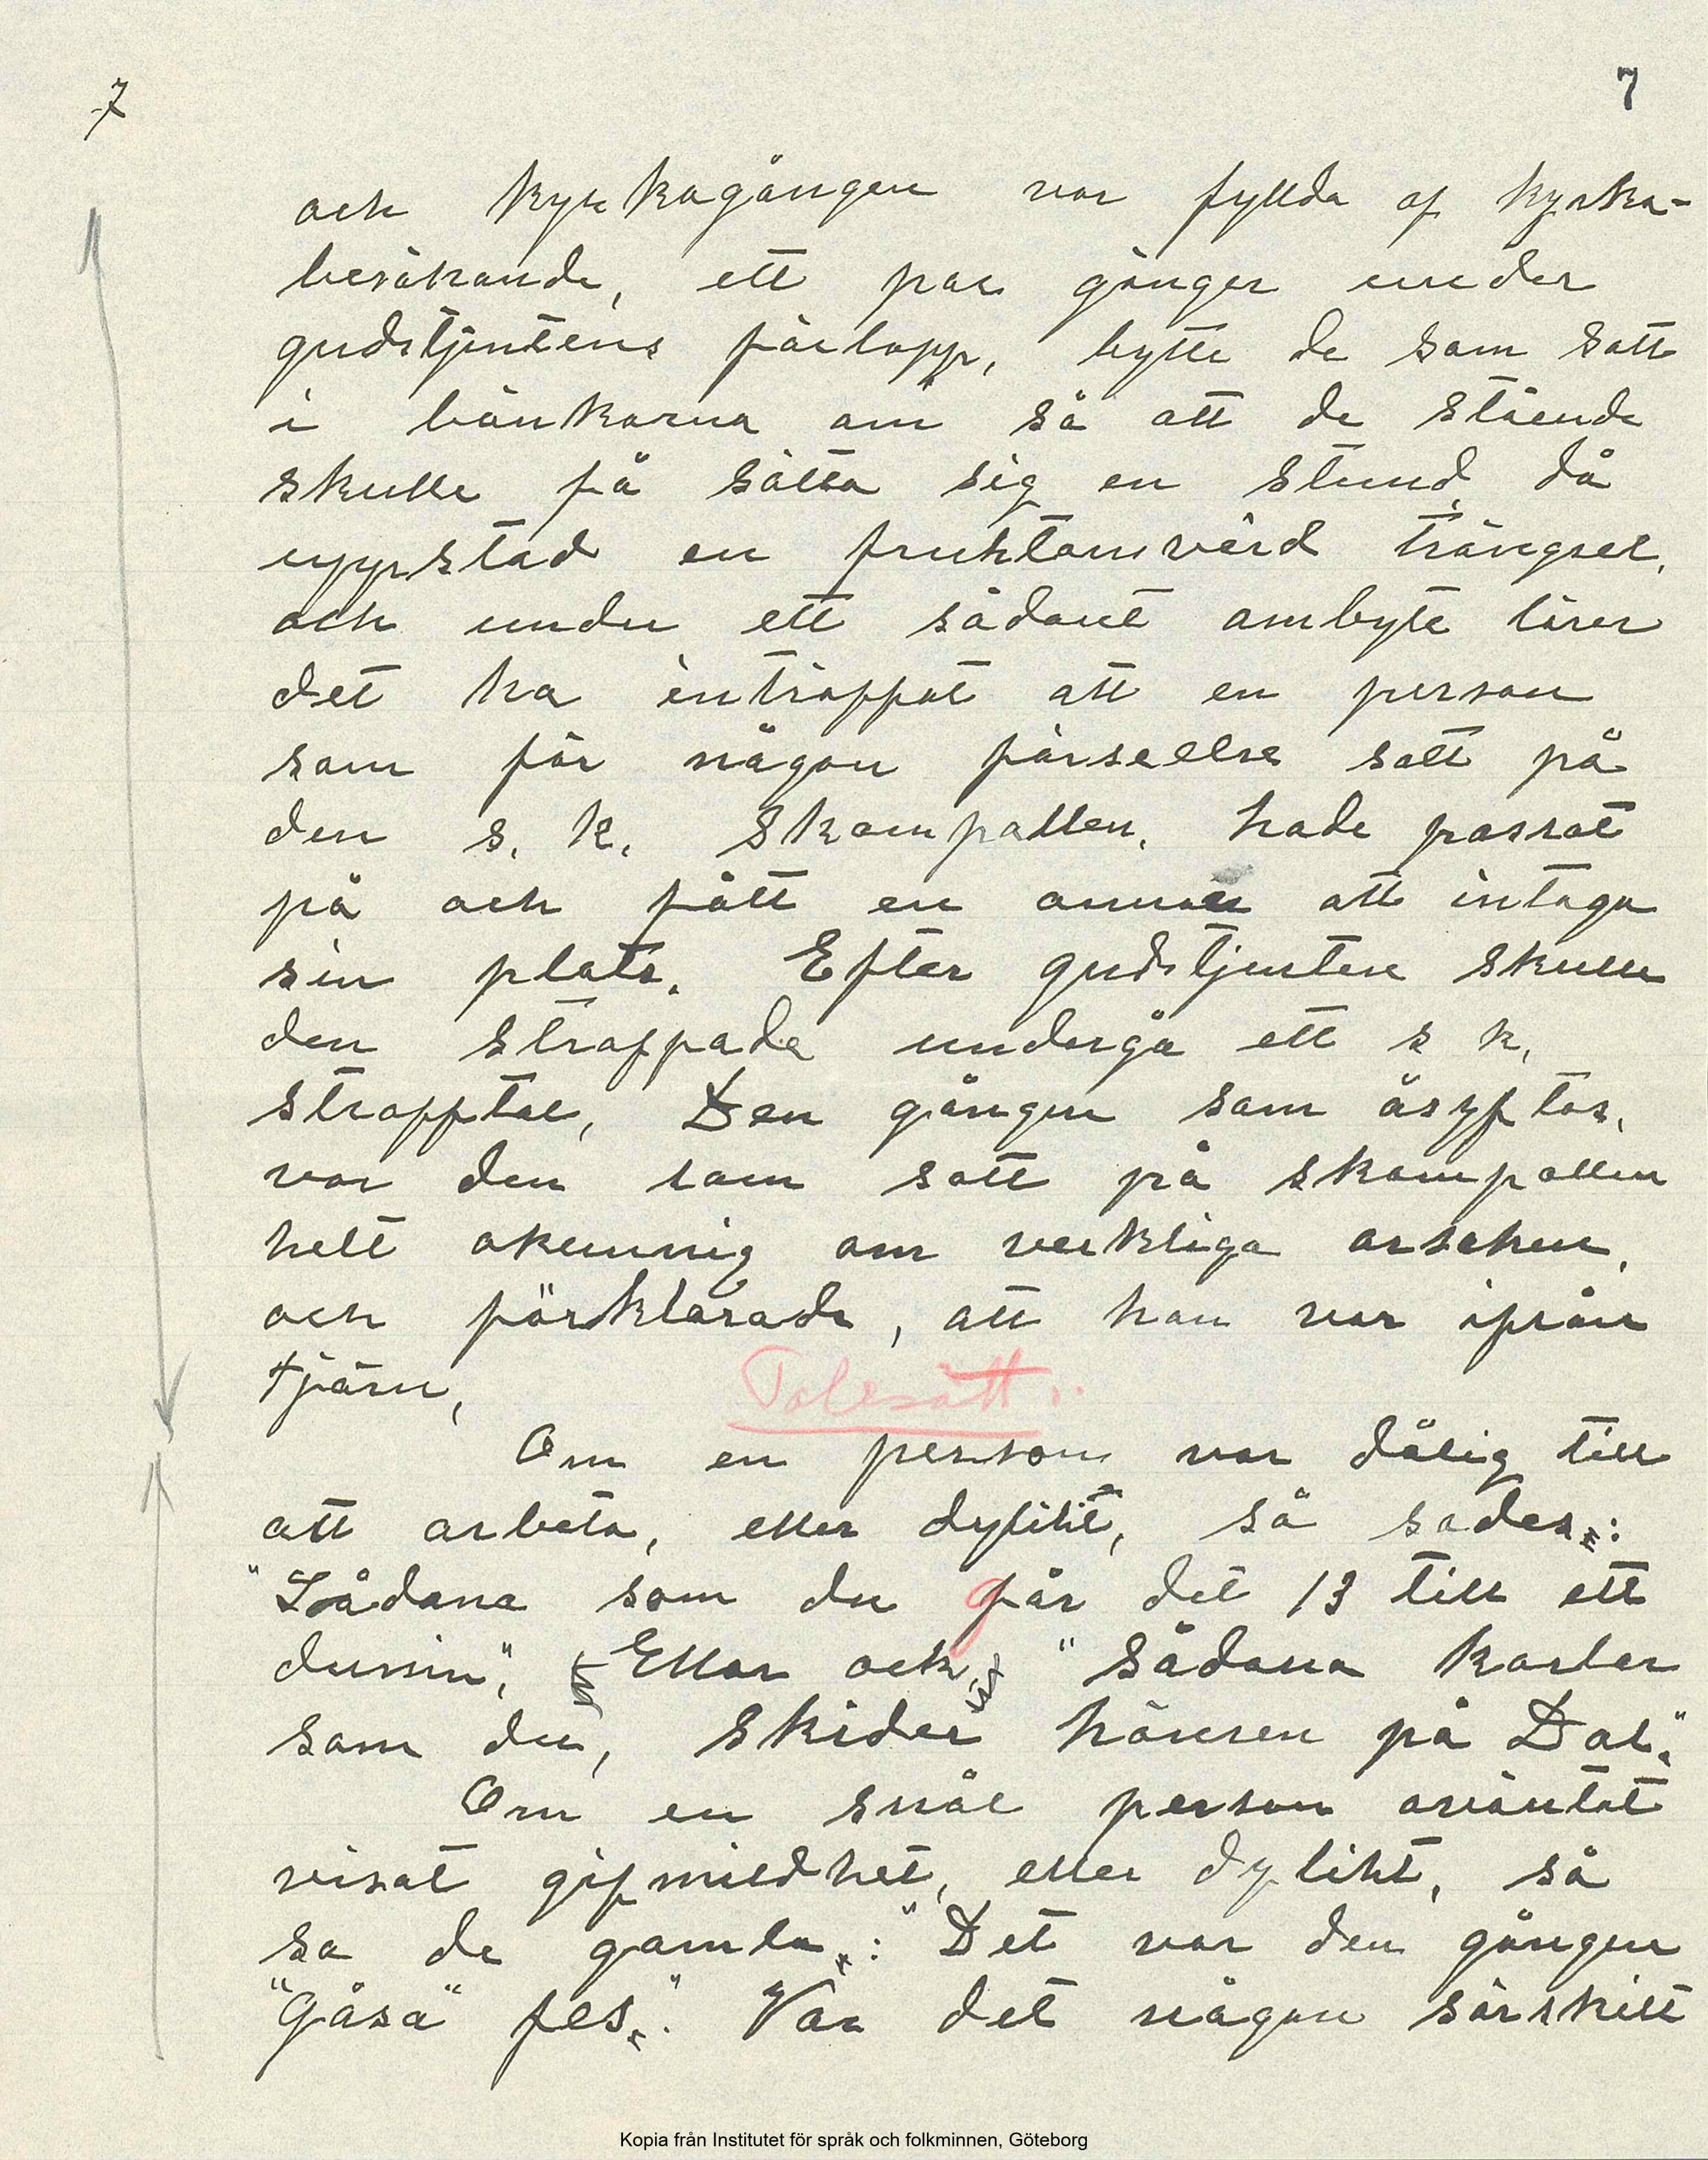 7
7
och kyrkagången var fyllda af kyrka-
besökande, ett par gånger under
gudstjentens förlopp, bytte de som satt
i bänkarna om så att de stående
skulle få sätta sig en stund, då
uppstod en fruktansvärd trängsel,
och under ett sådant ombyte lärer
det ha inträffat att en person
som för någon förseelse satt på
den s. k. skampallen, hade passat
på och fått en annan att intaga
sin plats. Efter gudstjensten skulle
den straffade undergå ett s k,
strafftal, Den gången som åsyftas,
var den som satt på skampallen
helt okunnig om verkliga orsaken,
och förklarade, att han var ifrån
tjärn,
Talesätt.
Om en person var dålig till
att arbeta, eller dylikt, så sades:
"Sådana som du går det 13 till ett
dussin", Eller ock "sådana karlar
som du, skider hönsen på Dal."
Om en snål person oväntat
visat gifmildhet, eller dylikt, så
sa de gamla: "Det var den gången
"Gåsa" fes." Var det någon särskilt
Kopia från Institutet för språk och folkminnen, Göteborg